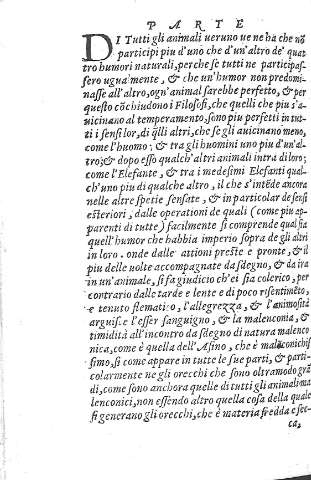 PARTE
DI Tutti gli animali ueruno ue ne ha che nõ
participi piu d'uno che d'un'altro de' quat
tro humori naturali, perche se tutti ne participas-
sero ugualmente, & che un'humor non predomi-
nasse all'altro, ogn'animal sarebbe perfetto, & per
questo cõchiudono i Filosofi, che quelli che piu s'a-
uicinano al temperamento, sono piu perfetti in tut-
ti i sensi lor, di q̃lli altri, che se gli auicinano meno,
come l'huomo; & tra gli huomini uno piu d'un'al-
tro; & dopo esso qualch'altri animali intra di loro;
come l'Elefante, & tra i medesimi Elefanti qual-
ch'uno piu di qualche altro, il che s'intẽde ancora
nelle altre spetie sensate, & in particolar de sensi
esteriori, dalle operationi de quali (come piu ap-
parenti di tutte) facilmente si comprende qual sia
quell'humor che habbia imperio sopra de gli altri
in loro. onde dalle attioni preste e pronte, & il
piu delle uolte accompagnate da sdegno, & da ira
in un'animale, si fa giudicio ch'ei sia colerico, per
contrario dalle tarde e lente e di poco risentimẽto,
e tenuto flematico, l'allegrezza, & l'animosità
arguisce l'esser sanguigno, & la malenconia, &
timidità all'incontro da sdegno di natura malenco
nica, come è quella dell'Asino, che è malãconichis
simo, si come appare in tutte le sue parti, & parti-
colarmente ne gli orecchi che sono oltramodo grã
di, come sono anchora quelle di tutti gli animali ma
lenconici, non essendo altro quella cosa della quale
si generano gli orecchi, che è materia fredda e sec-
ca,